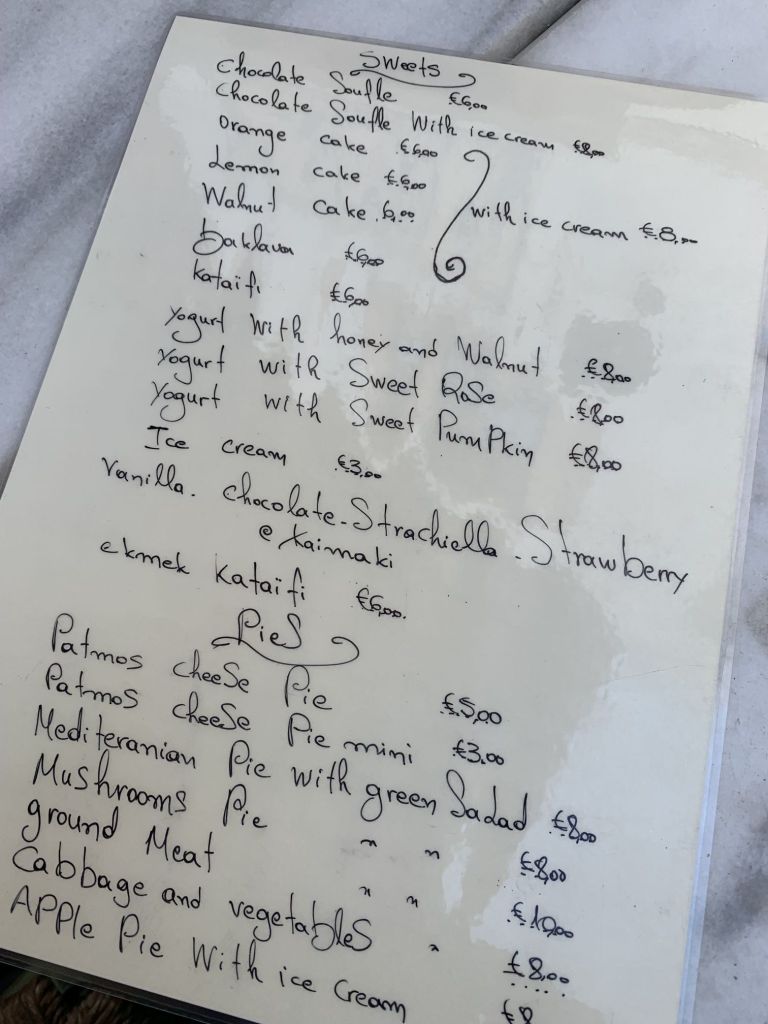 Sweets
Chocolate Soufle €6,00
Chocolate Soufle With ice cream €8,00
Orange cake €6,00
Lemon cake €6,00
Walnut Cake 6,00
with ice cream €8,00
baklava €6,00
kataifi €6,00
Yogurt with honey and Walnut €8,00
Yogurt with Sweet Rose €8,00
Yogurt with Sweet PumPkin €8,00
Ice cream €3,00
Vanilla. Chocolate-Strachiella. Strawberry
e kaimaki
ekmek kataifi €6,00.
Pies
Patmos cheese Pie €5,00
Patmos cheese Pie mini €3,00
Mediteranian Pie with green Sadad €8,00
Mushrooms Pie " " €8,00
ground Meat " " €10,00
Cabbage and vegetables " €8,00
APPle Pie With ice cream €8